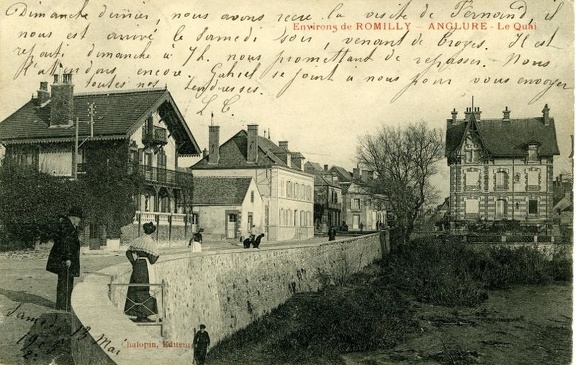 Dimanche dernier, nous avons reçu la visite de Fernand, il
Environs de ROMILLY - ANGLURE - Le Quai
nous est arrivé le Samedi soir, venant de Troyes. Il est
reparti dimanche à 7h. nous promettant de repasser. Nous
l'attendons encore. Gabriel se joint à nous pour vous envoyer
toutes nos tendresses.
L. C.
Samedi 13 Mai
Chalopin, Editeur